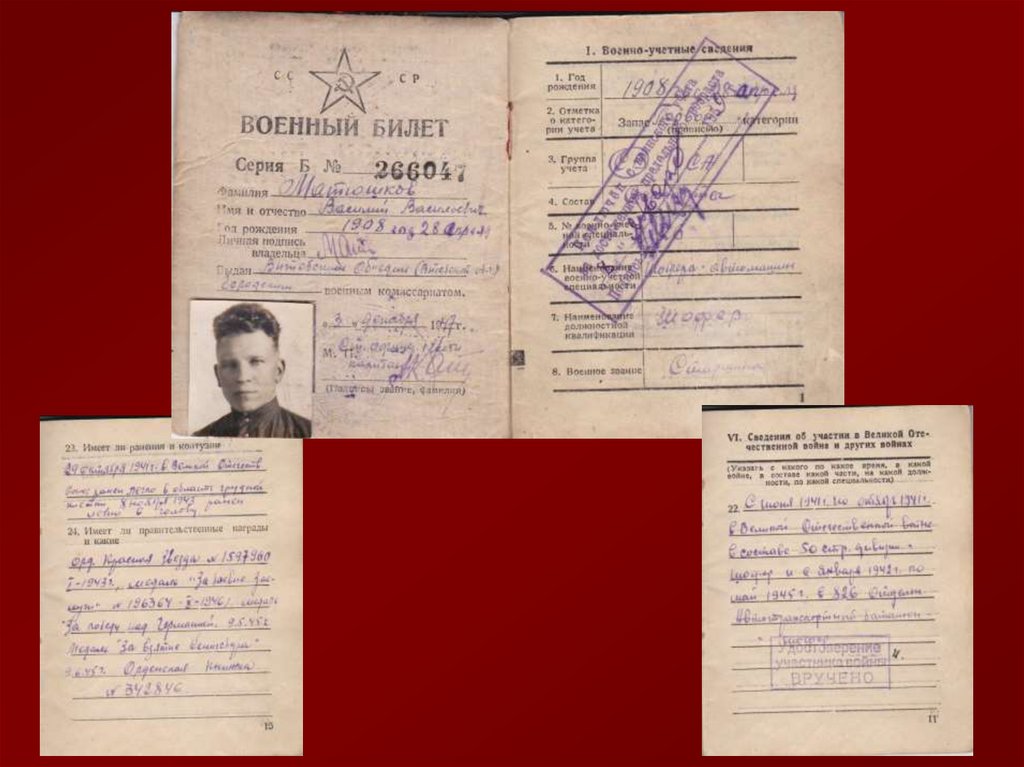 СС СР
ВОЕННЫЙ БИЛЕТ
Серия Б № 266047
Фамилия Матюшков
Имя и отчество Василий Васильевич
Год рождения 1908 год 28 апреля
Личная подпись
владельца
Выдан
Городским военным комиссариатом.
3 декабря 1947 г.
М. П.
(Подпись, звание, фамилия)
I. Военно-учетные сведения
1. Год
рождения
1908 28 апреля
2. Отметка
о катего-
рии учета
Запас категории
(прописью)
3. Группа
учета
СА
4. Состав
5. № военно-учет-
ной специаль-
ности
6. Наименование
военно-учетной
специальности
шофера-автомашины
7. Наименование
должностной
квалификации
Шофер
8. Военное звание
1
23. Имеет ли ранения и контузии
29 октября 1941 г. в Великой Отечеств
войне ранен легко в область грудной
клетки 8 ноября 1943 ранен
легко в голову
24. Имеет ли правительственные награды
и какие
орд. Красная Звезда № 1597960
1943 г., медаль "За боевые зас-
луги" № 196364 1946 г. медаль
"За победу над Германией. 9.5.45 г.
Медаль "За взятие
9.6.45 г. Орденская книжка
№ 342846
15
VI. Сведения об участии в Великой Оте-
чественной войне и других войнах
(Указать с какого по какое время, в какой
войне, в составе какой части, на какой долж-
ности, по какой специальности)
22. С июня 1941 г. по октябрь 1941 г.
в Великой Отечественной войне
в составе 50 стр. дивизии -
шофер и с января 1942 г. по
май 1945 г. в 826 отдельн.
Автотранспортный батальон -
шофер
Удостоверение
участника войны
ВРУЧЕНО
11